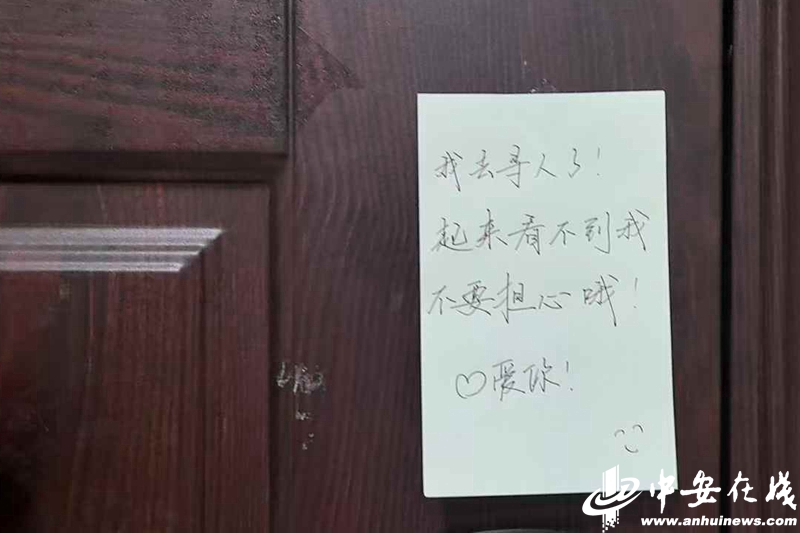 我去寻人了!
起来看不到我
不要担心哦!
♡爱你!
中安在线
www.anhuinews.com